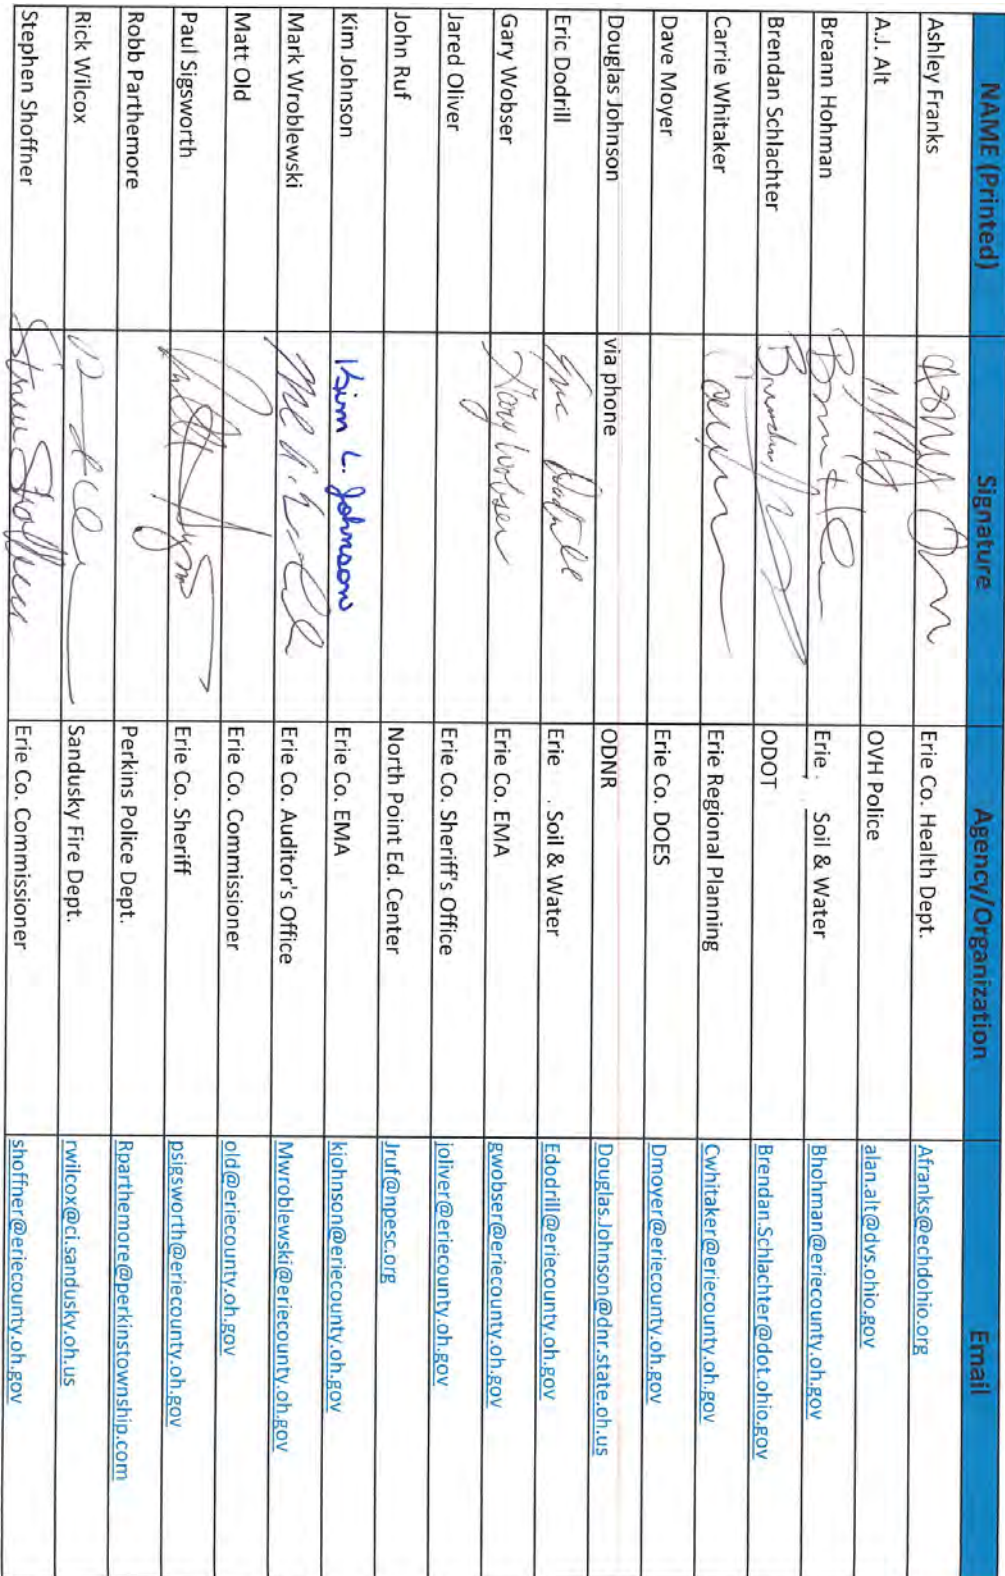 NAME (Printed) Signature Agency/Organization Email
Ashley Franks Erie Co. Health Dept. Afranks@echdohio.org
A.J. Alt OVH Police alan.alt@dvs.ohio.gov
Breann Hohman Erie . Soil & Water Bhohman@eriecounty.oh.gov
Brendan Schlachter ODOT Brendan.Schlachter@dot.ohio.gov
Carrie Whitaker Erie Regional Planning Cwhitaker@eriecounty.oh.gov
Dave Moyer Erie Co. DOES Dmoyer@eriecounty.oh.gov
Douglas Johnson via phone ODNR Douglas.Johnson@dnr.state.oh.us
Eric Dodrill Eric Dodrill Erie . Soil & Water Edodrill@eriecounty.oh.gov
Gary Wobser Gary Wobser Erie Co. EMA gwobser@eriecounty.oh.gov
Jared Oliver Erie Co. Sheriff's Office joliver@eriecounty.oh.gov
John Ruf North Point Ed. Center Jruf@npesc.org
Kim Johnson Kim L. Johnson Erie Co. EMA kjohnson@eriecounty.oh.gov
Mark Wroblewski Erie Co. Auditor's Office Mwroblewski@eriecounty.oh.gov
Matt Old Erie Co. Commissioner old@eriecounty.oh.gov
Paul Sigsworth Erie Co. Sheriff psigsworth@eriecounty.oh.gov
Robb Parthemore Perkins Police Dept. Rparthemore@perkinstownship.com
Rick Wilcox Sandusky Fire Dept. rwilcox@ci.sandusky.oh.us
Stephen Shoffner Steve Shoffner Erie Co. Commissioner shoffner@eriecounty.oh.gov